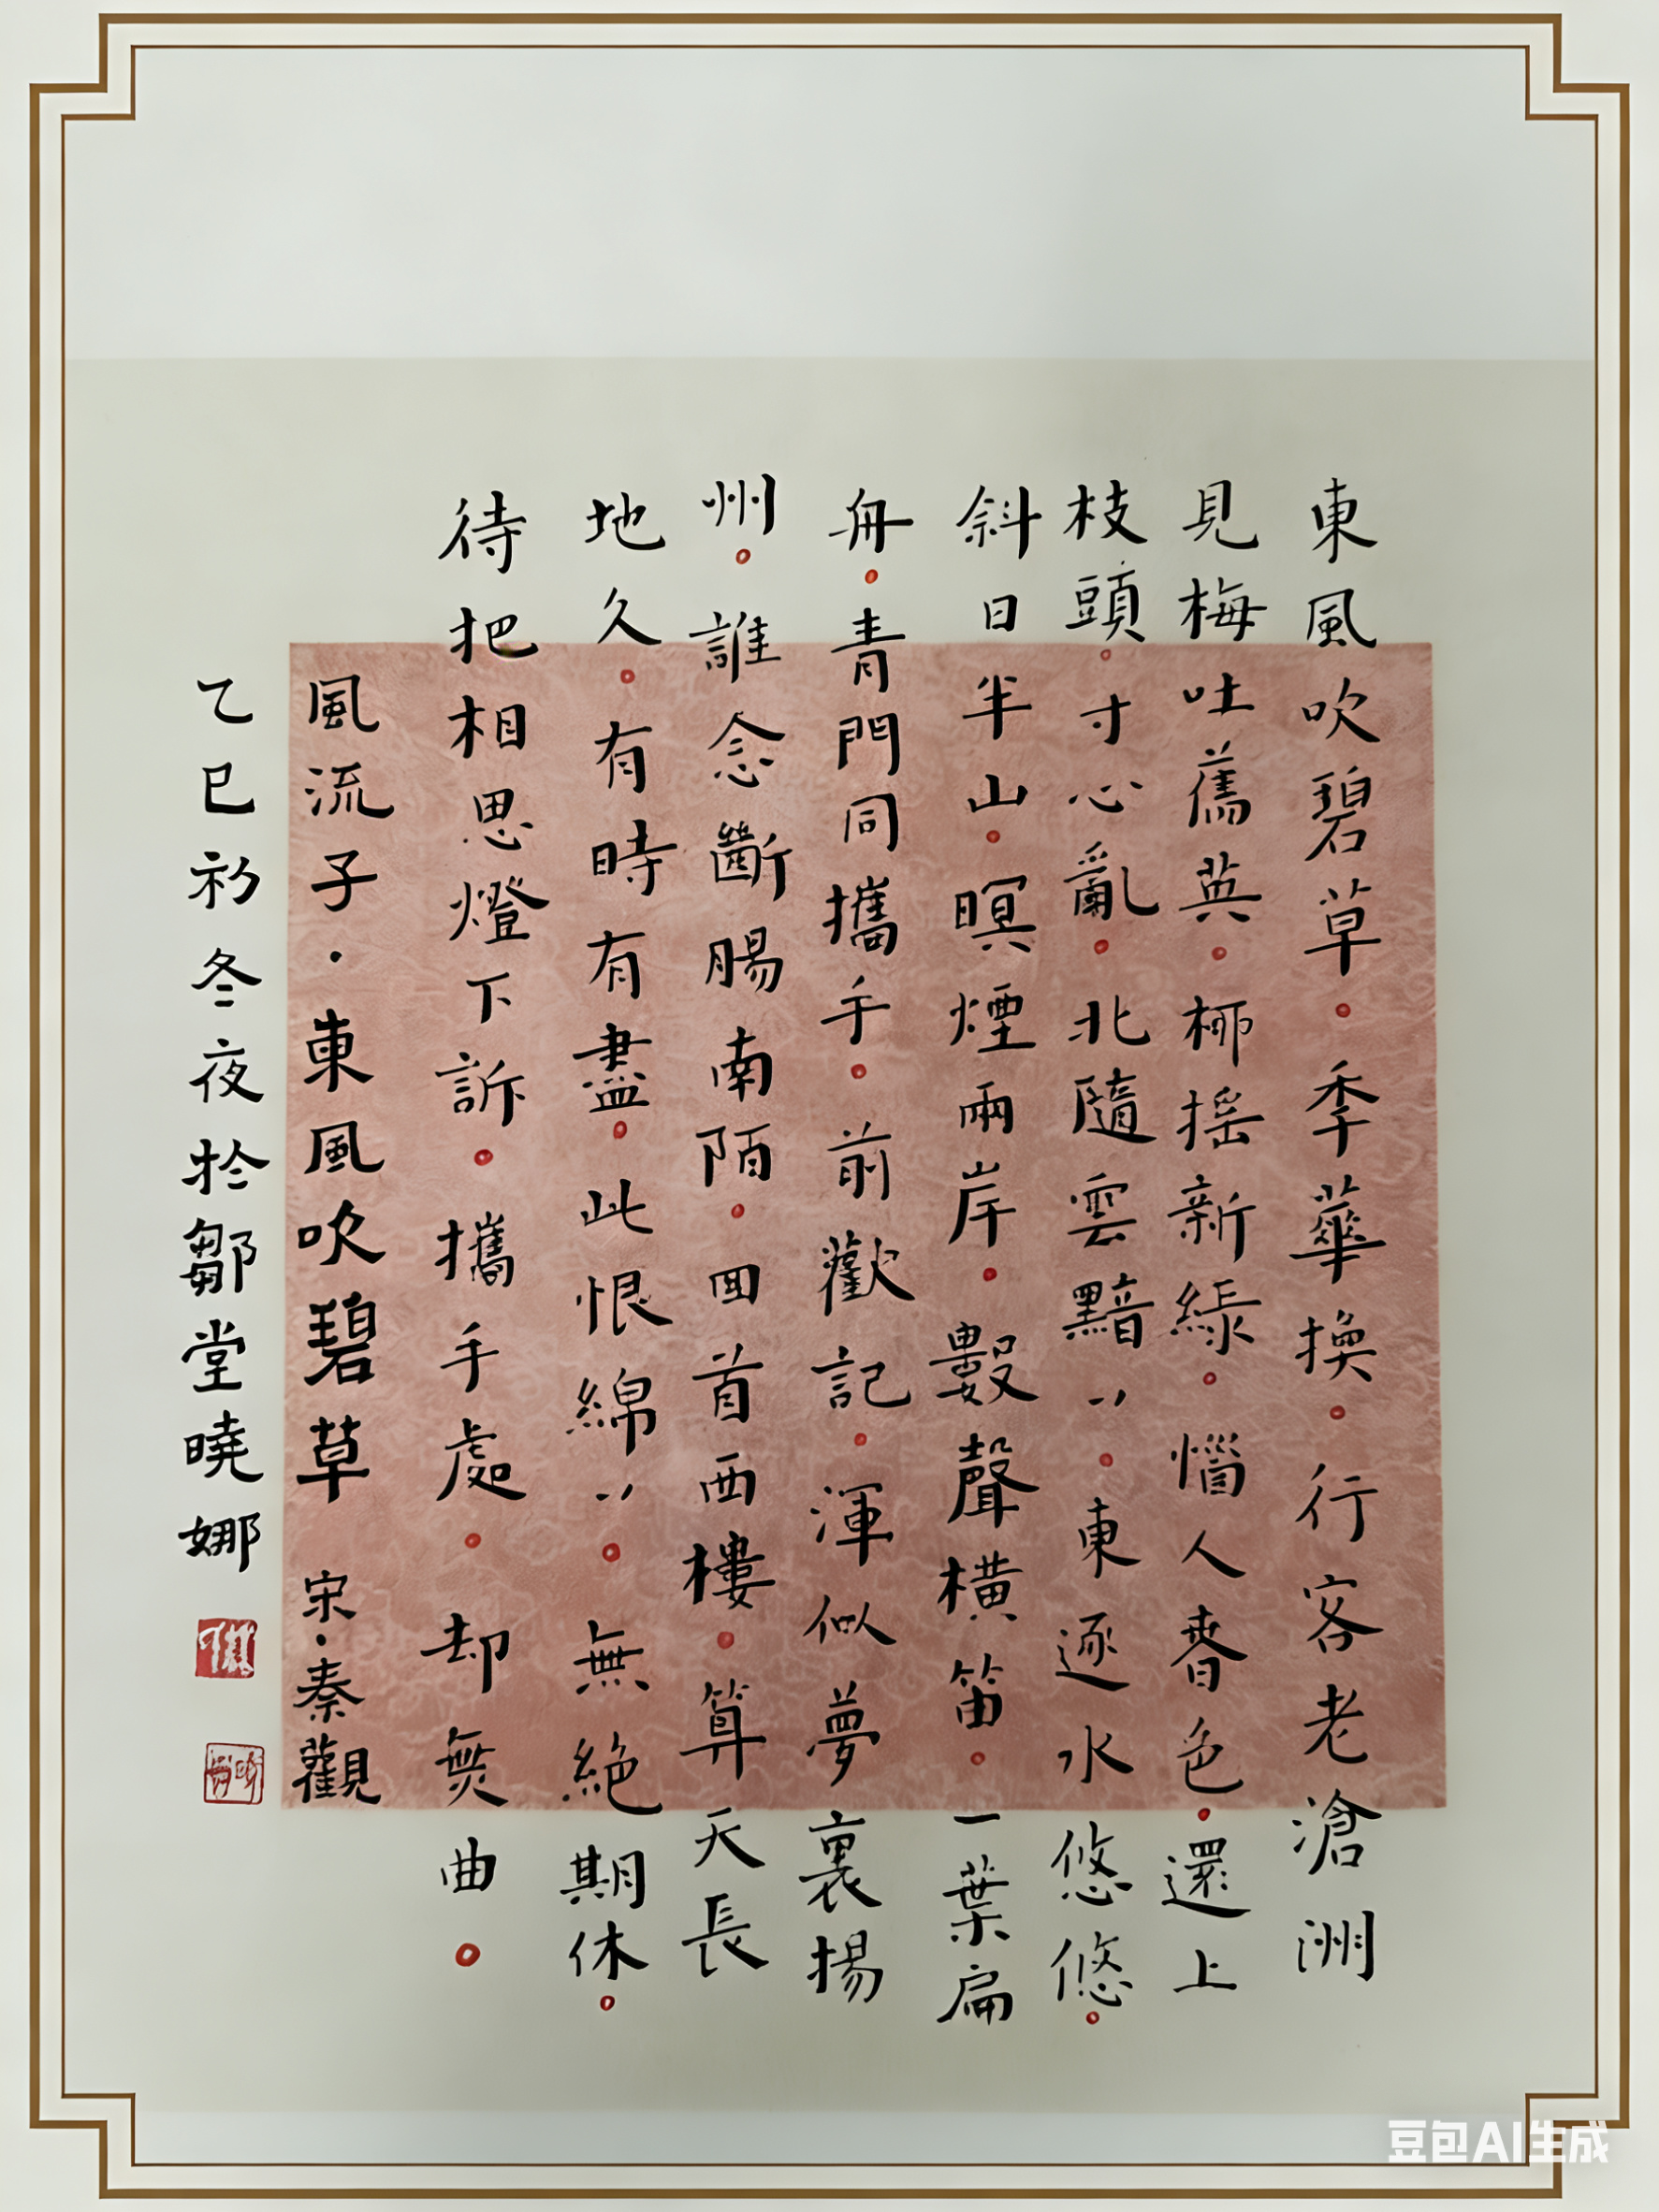 東風吹碧草。季華換。行客老滄洲
見梅吐舊英。柳摇新綠。惱人春色。還上
枝頭。寸心亂。北隨雲黯〻。東逐水悠悠。
斜日半山。暝煙兩岸。數聲橫笛。一葉扁
舟。青門同攜手。前歡記。渾似夢裏揚
州。誰念斷腸南陌。回首西樓。算天長
地久。有時有盡。此恨綿〻。無絕期休。
待把相思燈下訴。攜手處。却無曲。
風流子·東風吹碧草 宋·秦觀
乙巳初冬夜於鄒堂曉娜
豆包AI生成